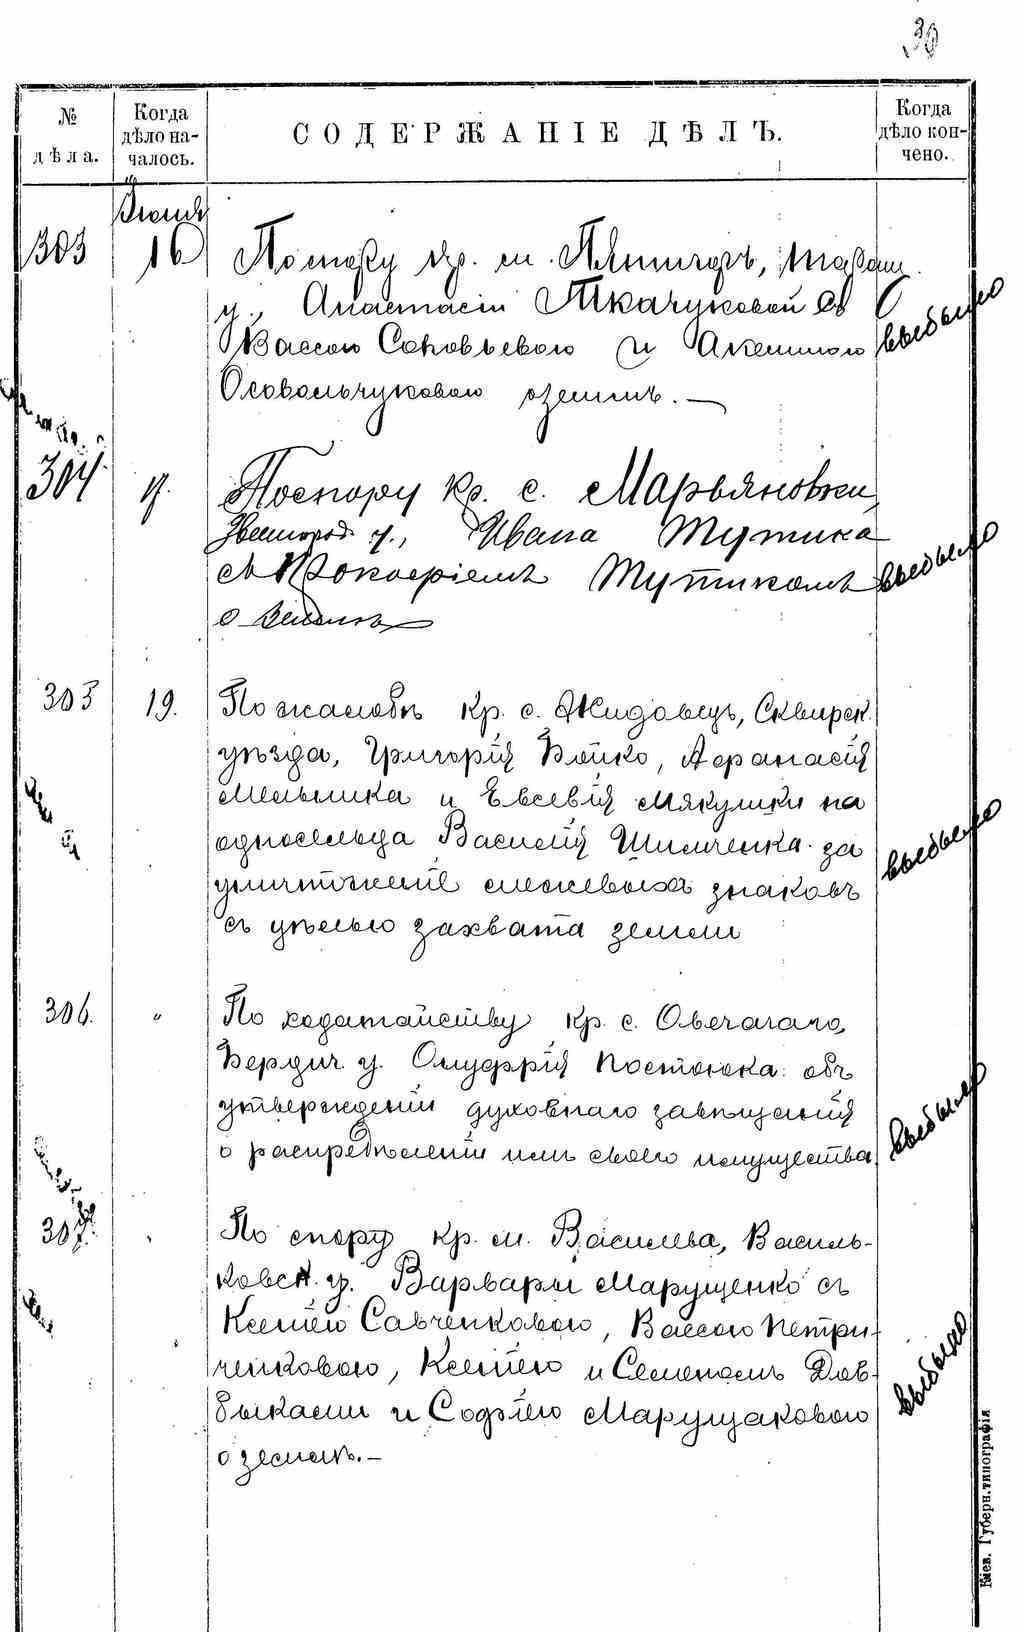 30
№ дѣла.
Когда дѣло на-
чалось.
СОДЕРЖАНІЕ ДѢЛЪ.
Когда дѣло кон-
чено.
Іюня
303 16 По спору кр. м. Пятигоръ, Таращ.
у., Анастасіи Ткачуковой съ
Вассою Соловьевою и Акелиною
Осовольчуковою о землѣ. —
выбыло
304 17. По спору кр. с. Марьяновки,
Звенигород. у., Ивана Тутика
съ Прокофіемъ Тутикомъ
о землѣ
выбыло
305 19. По жалобѣ кр. с. Жидовецъ, Сквирск.
уѣзда, Григорія Бойко, Афанасія
Мельника и Евсевія Мякушки на
односельца Василія Шимченка за
уничтоженіе межевыхъ знаковъ
съ цѣлью захвата земли
выбыло
306. " По ходатайству кр. с. Овечачаго,
Бердич. у. Онуфрія Постоюка объ
утвержденіи духовнаго завѣщанія
о распредѣленіи имъ своего имущества
выбыло
307. По спору кр. м. Василева, Василь-
ковск. у. Варвары Марущенко съ
Ксеніею Савченковою, Вассою Петри-
ченковою, Ксеніею и Семеномъ Дов-
быками и Софіею Марущаковою
о землѣ. —
выбыло
Кіев. Губерн. типографія